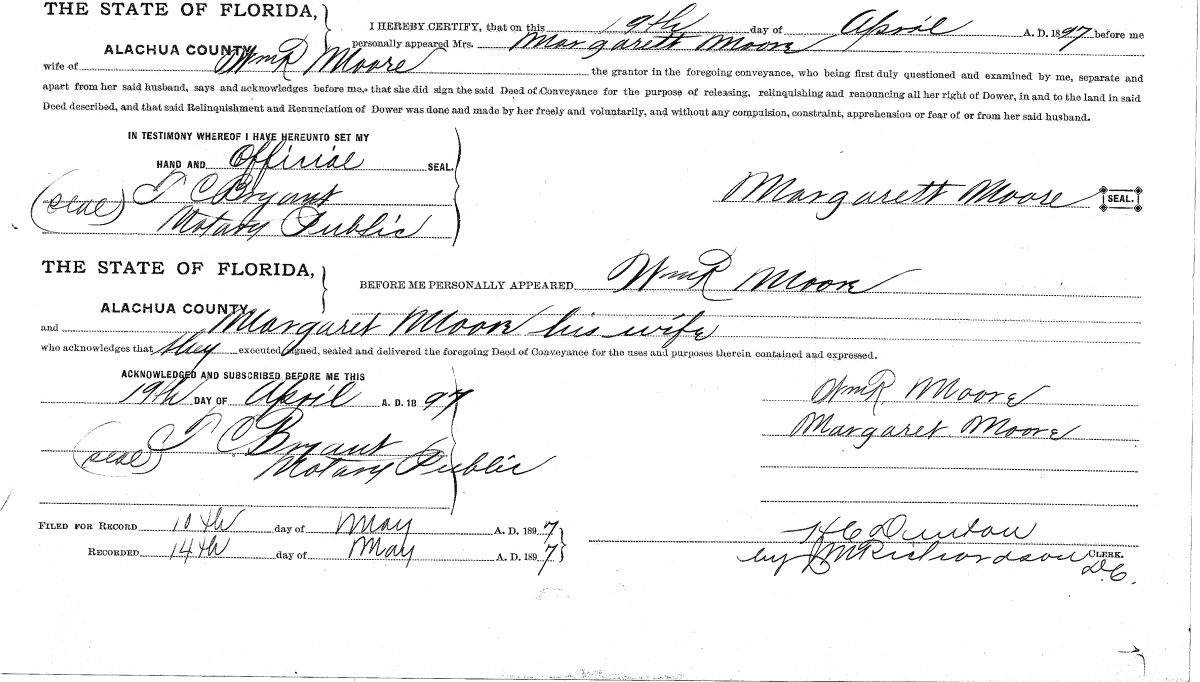 THE STATE OF FLORIDA,
ALACHUA COUNTY
I HEREBY CERTIFY, that on this 19th day of April A. D. 1897 before me
personally appeared Mrs. Margarett Moore
wife of Wm R Moore the grantor in the foregoing conveyance, who being first duly questioned and examined by me, separate and
apart from her said husband, says and acknowledges before me, that she did sign the said Deed of Conveyance for the purpose of releasing, relinquishing and renouncing all her right of Dower, in and to the land in said
Deed described, and that said Relinquishment and Renunciation of Dower was done and made by her freely and voluntarily, and without any compulsion, constraint, apprehension or fear of or from her said husband.
IN TESTIMONY WHEREOF I HAVE HEREUNTO SET MY
HAND AND Official SEAL.
(seal) T C Bryant
Notary Public
Margarett Moore SEAL.
THE STATE OF FLORIDA,
ALACHUA COUNTY
BEFORE ME PERSONALLY APPEARED Wm R Moore
and Margaret Moore his wife
who acknowledges that they executed signed, sealed and delivered the foregoing Deed of Conveyance for the uses and purposes therein contained and expressed.
ACKNOWLEDGED AND SUBSCRIBED BEFORE ME THIS
19th DAY OF April A. D. 1897
(seal) T C Bryant
Notary Public
Wm R. Moore
Margaret Moore
FILED FOR RECORD 10th day of May A. D. 1897
RECORDED 14th day of May A. D. 1897
H C Denton
by J M Richardson CLERK.
D.C.